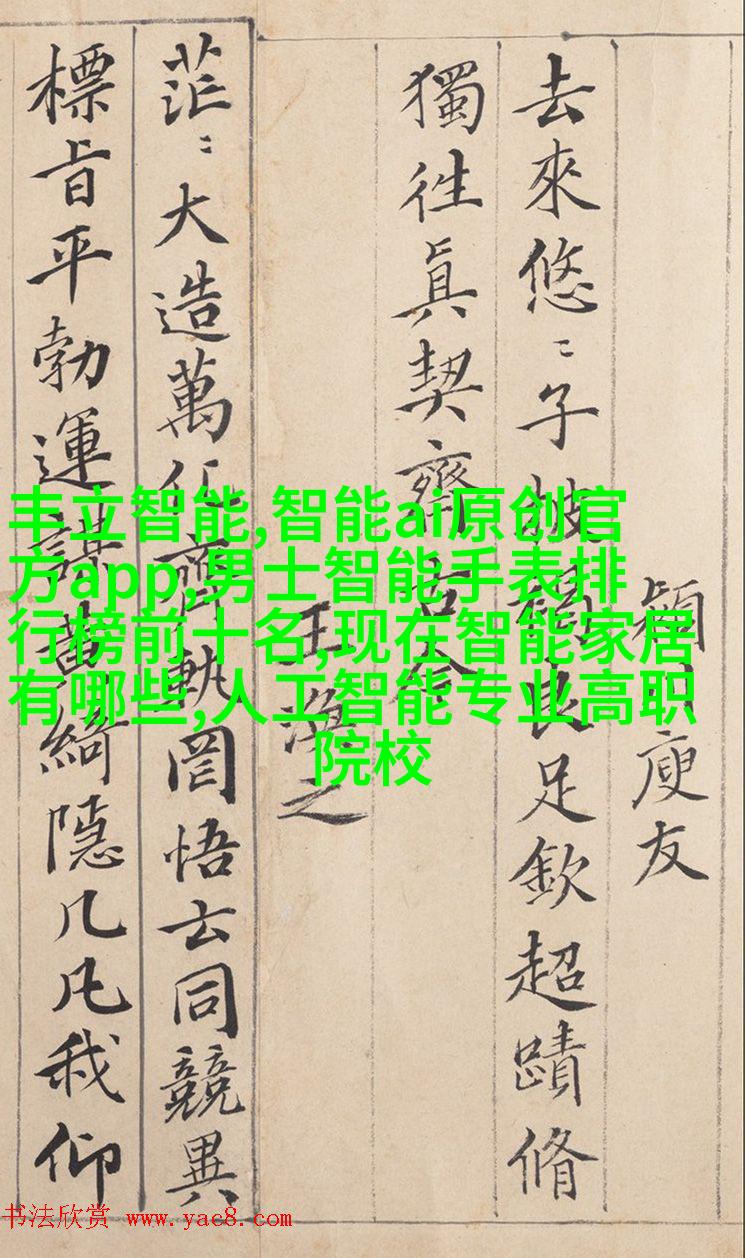 頴川庾友
去來悠〻子披褐良足欽超蹟脩
獨往眞契齊古今
王渙之
茫〻大造萬化齊軌罔悟玄同競異
標旨平勃運謀黃綺隱几凡我仰
丰立智能,智能ai原创官
方app,男士智能手表排
行榜前十名,现在智能家居
有哪些,人工智能专业高职
院校
书法欣赏 www.yac8.com